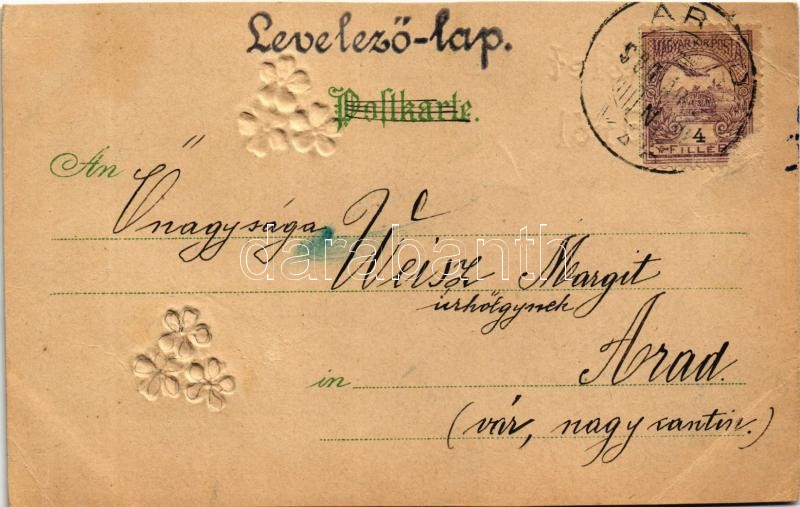 Levelező-lap.
Postkarte.
MAGYAR KIR. POSTA
4
FILLÉR
AR
An
Őnagysága Weisz Margit
úrhölgynek
in Arad.
(vár, nagy cantin.)
darabanth